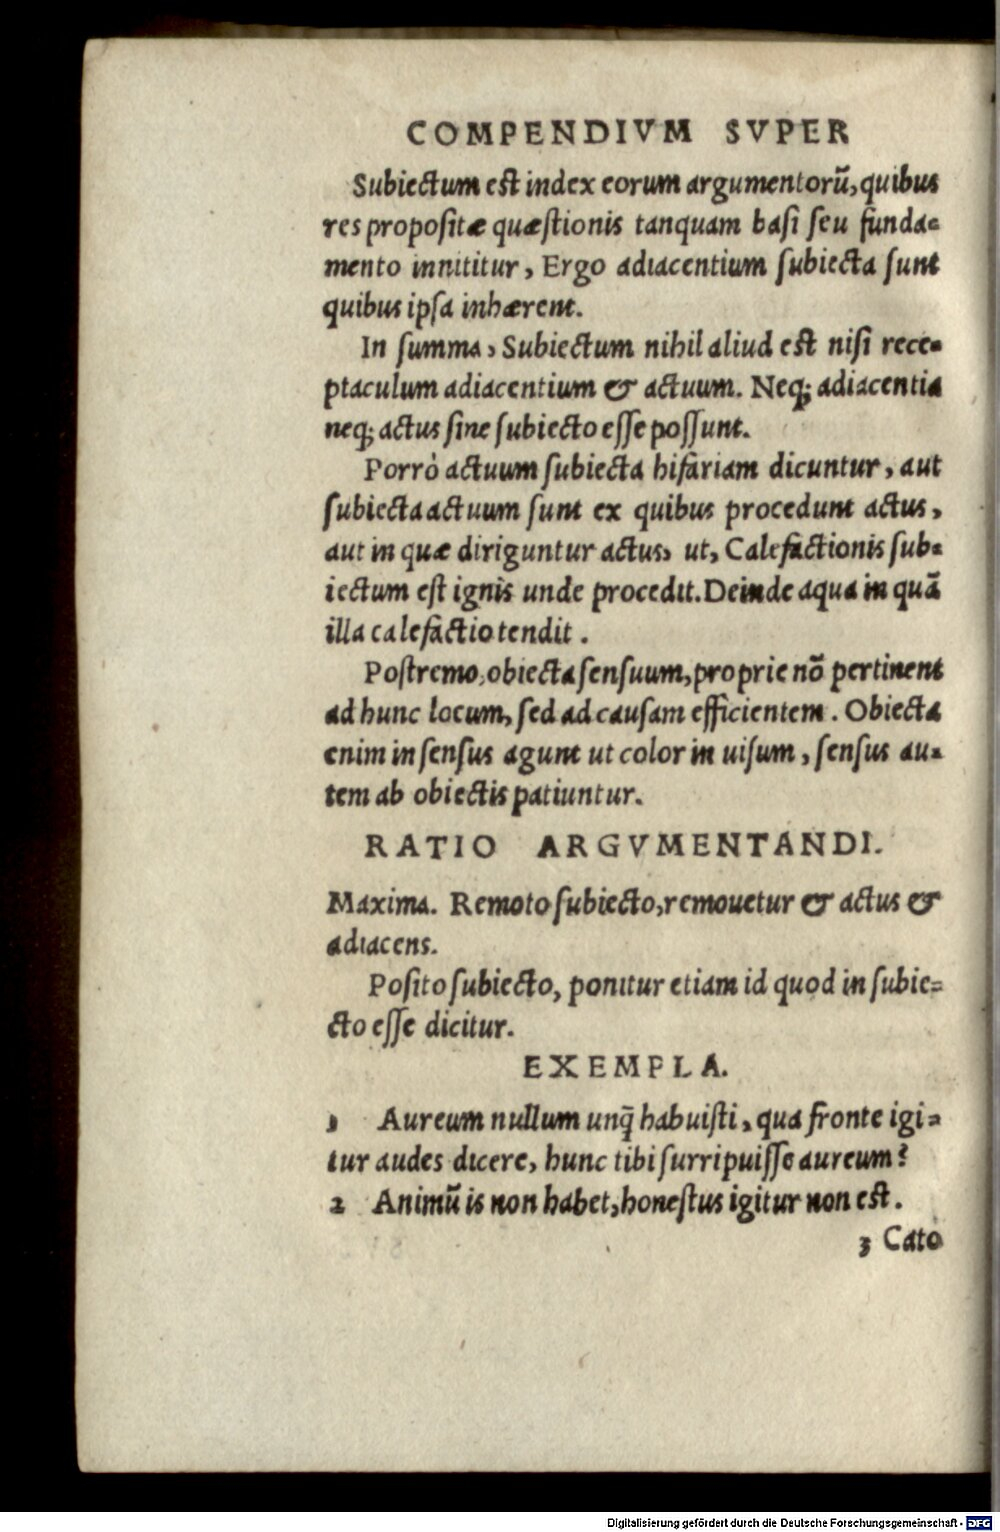 COMPENDIVM SVPER
Subiectum est index eorum argumentorū, quibus
res propositæ quæstionis tanquam basi seu funda=
mento innititur, Ergo adiacentium subiecta sunt
quibus ipsa inhærent.
In summa, Subiectum nihil aliud est nisi rece=
ptaculum adiacentium & actuum. Neq; adiacentia
neq; actus sine subiecto esse possunt.
Porrò actuum subiecta bifariam dicuntur, aut
subiecta actuum sunt ex quibus procedunt actus,
aut in quæ diriguntur actus, ut, Calefactionis sub=
iectum est ignis unde procedit. Deinde aqua in quā
illa calefactio tendit.
Postremo, obiecta sensuum, proprie nō pertinent
ad hunc locum, sed ad causam efficientem. Obiecta
enim in sensus agunt ut color in uisum, sensus au=
tem ab obiectis patiuntur.
RATIO ARGVMENTANDI.
Maxima. Remoto subiecto, remouetur & actus &
adiacens.
Posito subiecto, ponitur etiam id quod in subie=
cto esse dicitur.
EXEMPLA.
1 Aureum nullum unq̄ habuisti, qua fronte igi=
tur audes dicere, hunc tibi surripuisse aureum?
2 Animū is non habet, honestus igitur non est.
3 Cato
Digitalisierung gefördert durch die Deutsche Forschungsgemeinschaft - DFG